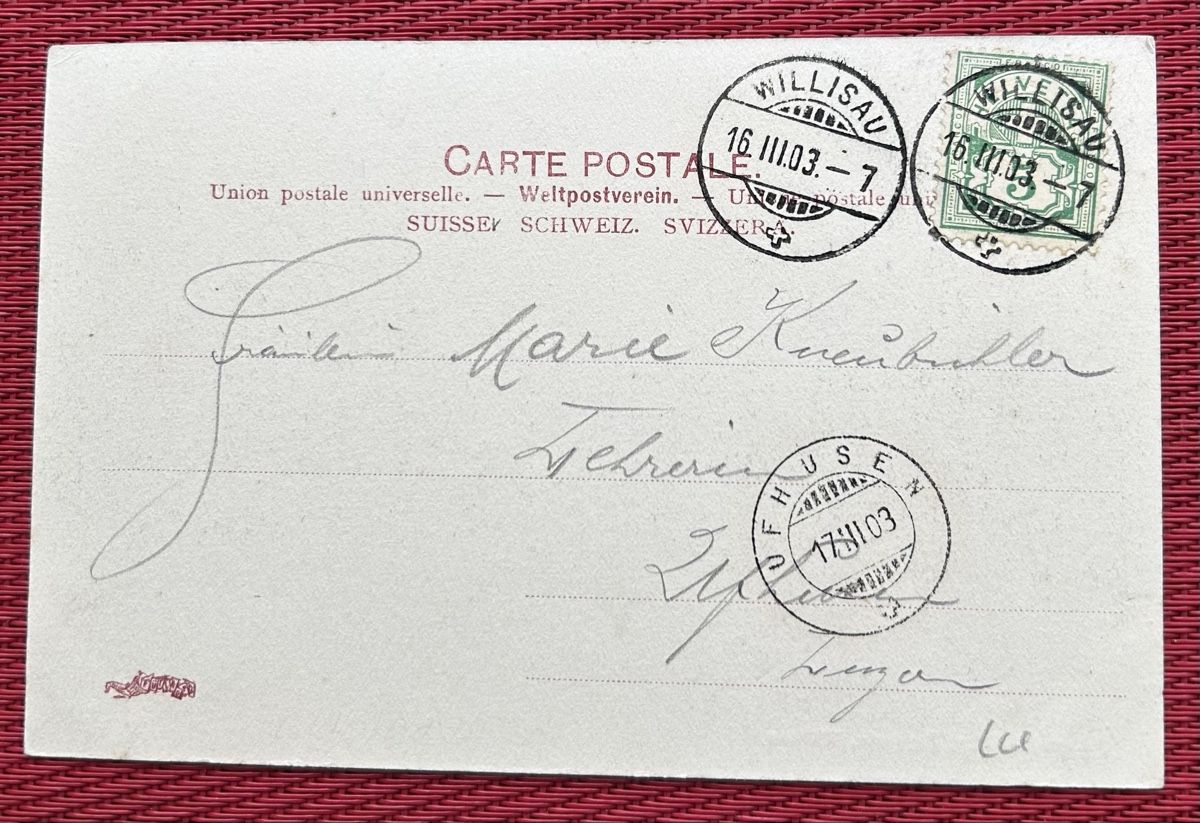 WILLISAU
16 III.03.–7
WILLISAU
16 III.03.–7
5
CARTE POSTALE.
Union postale universelle. — Weltpostverein. — Union postale uni
SUISSE SCHWEIZ. SVIZZERA.
Fräulein Marie Kneubühler
Lehrerin
UFHUSEN
17 III 03
Ufhusen
Luzern